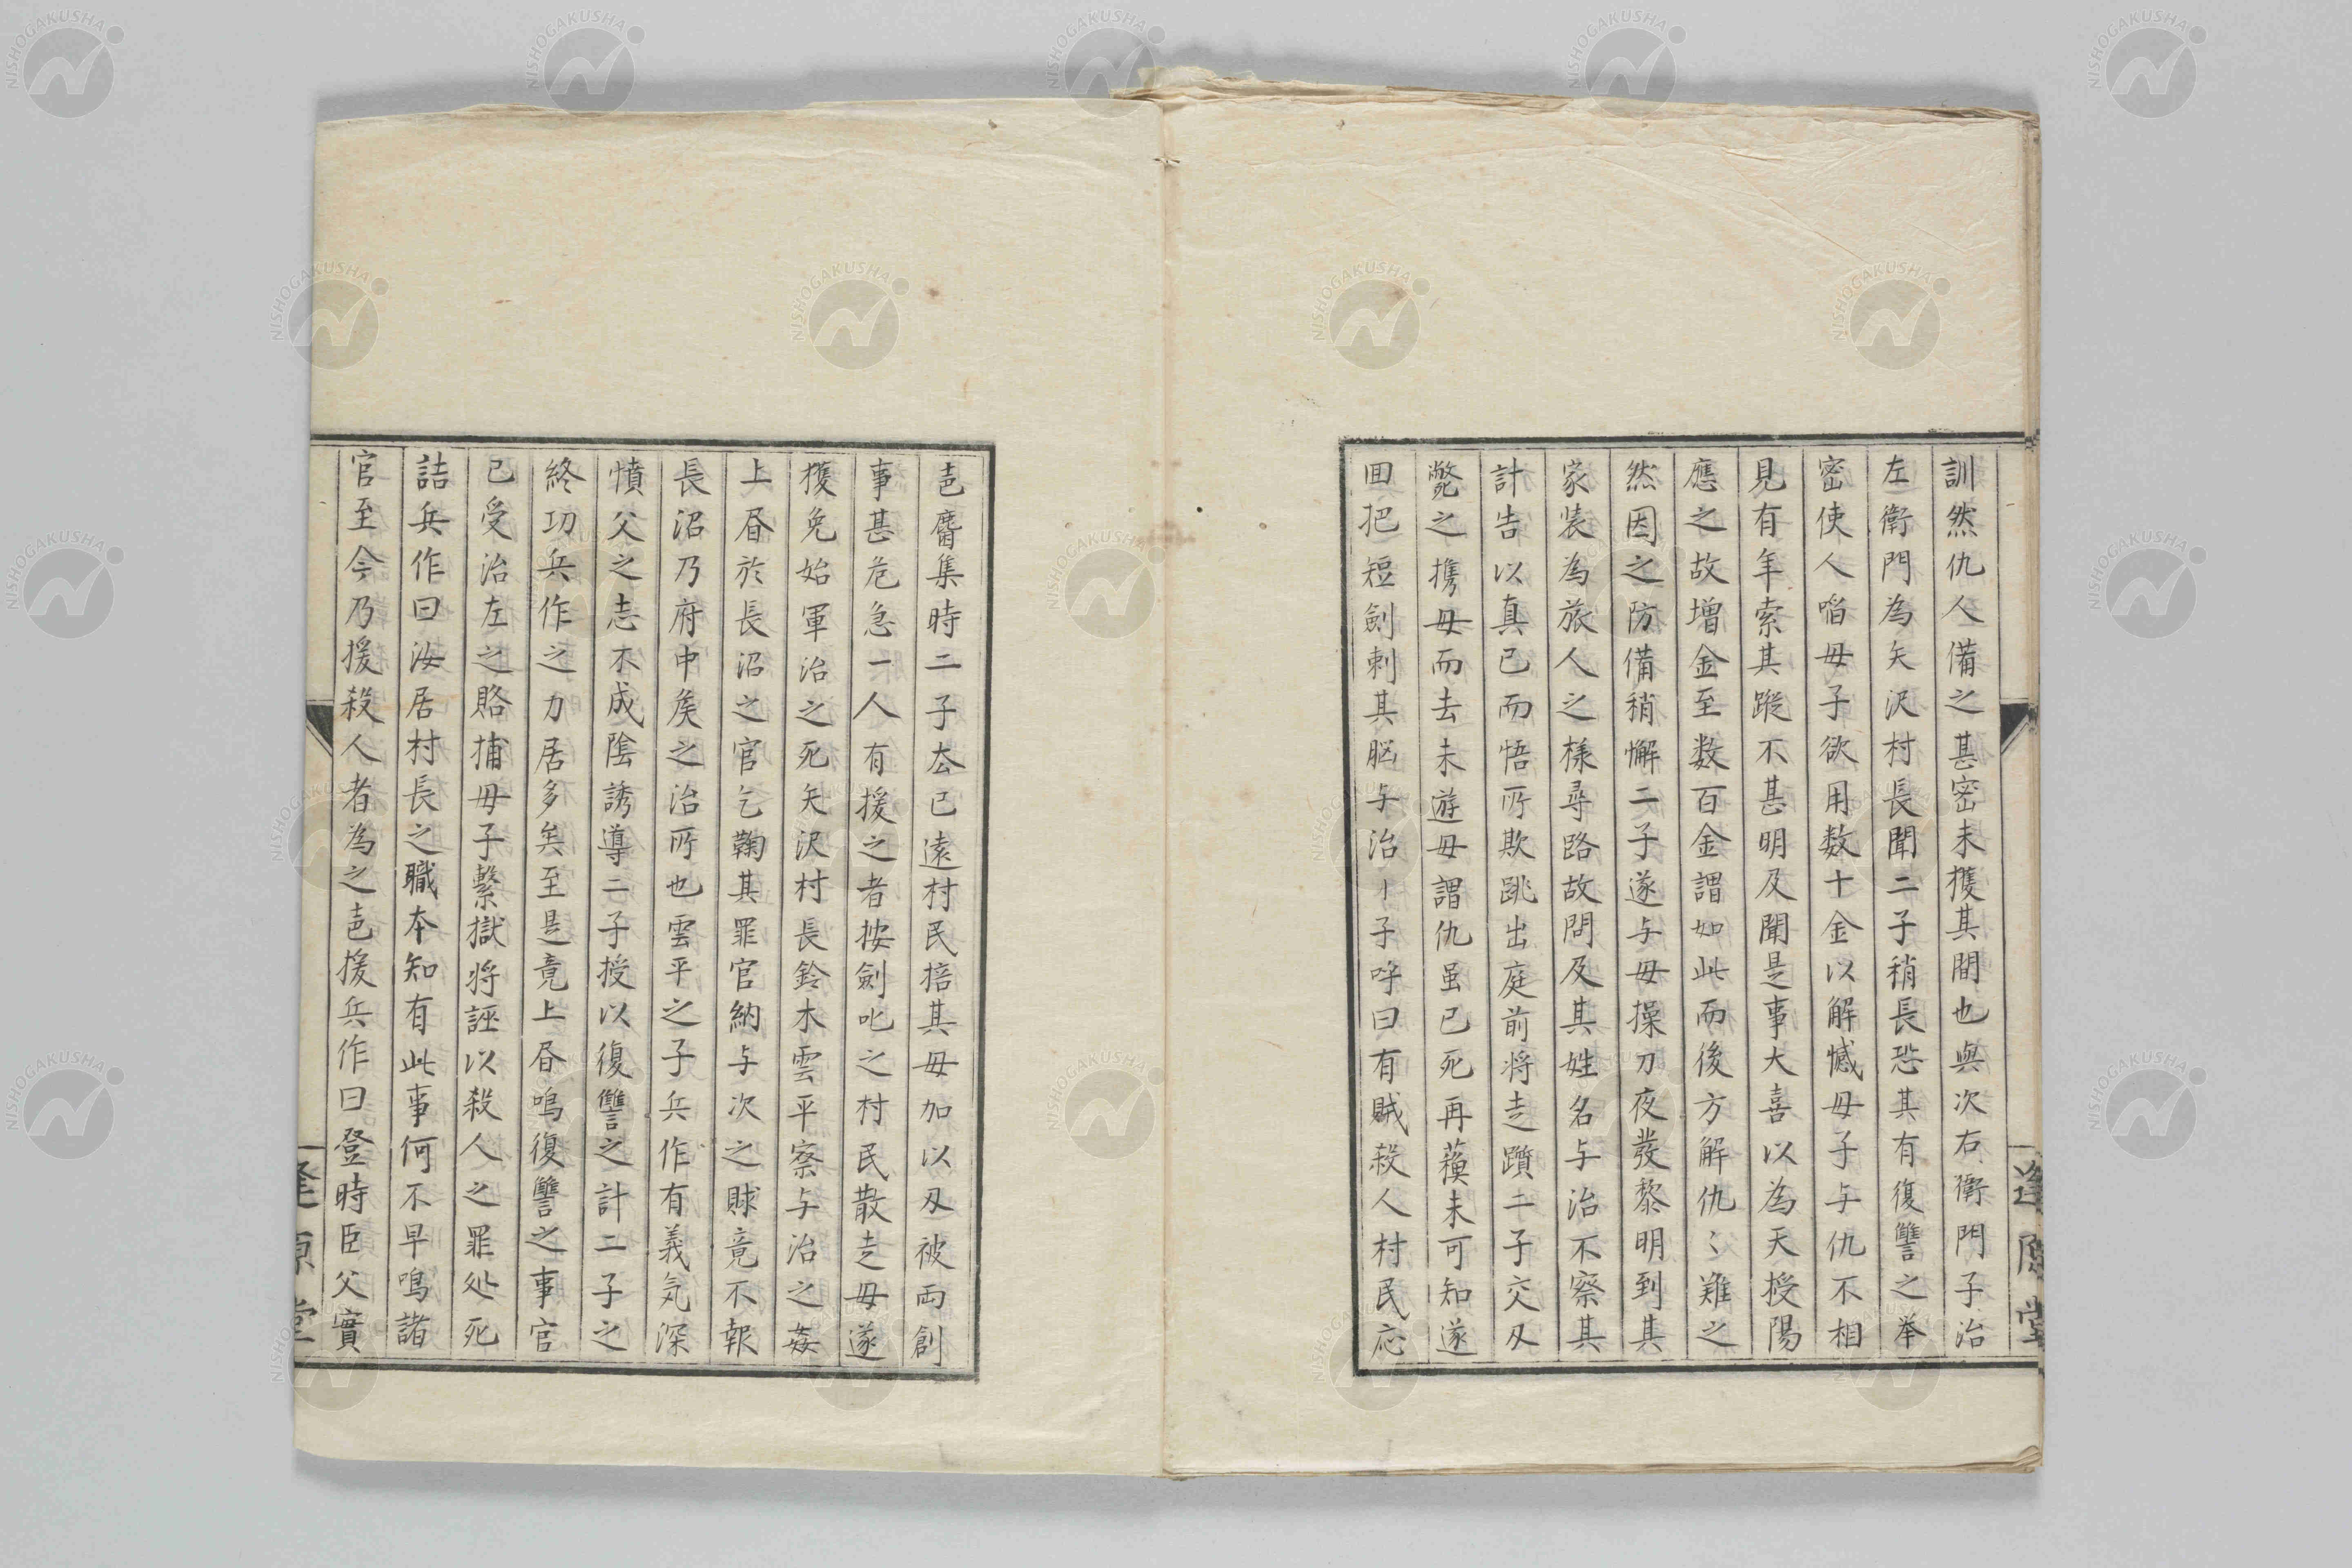 訓然仇人備之甚密未獲其間也與次右衛門子治
左衛門為矢沢村長聞二子稍長恐其有復讐之挙
密使人啗毋子欲用数十金以解憾毋子与仇不相
見有年索其蹤不甚明及聞是事大喜以為天授陽
應之故增金至数百金謂如此而後方解仇〻難之
然因之防備稍懈二子遂与毋操刀夜發黎明到其
家装為旅人之樣尋路故問及其姓名与治不察其
計告以真已而悟所欺跳出庭前将走躓二子交刄
斃之携毋而去未遊毋謂仇虽已死再蘓未可知遂
回把短劍刺其脳与治一子呼曰有賊殺人村民応
声麕集時二子去已遠村民掊其毋加以刄被両創
事甚危急一人有援之者按劍叱之村民散走毋遂
獲免始軍治之死矢沢村長鈴木雲平察与治之姦
上昏於長沼之官乞鞠其罪官納与次之賕竟不報
長沼乃府中矦之治所也雲平之子兵作有義気深
憤父之志不成陰誘導二子授以復讐之計二子之
終功兵作之力居多矣至是竟上昏鳴復讐之事官
已受治左之賂捕毋子繋獄将誣以殺人之罪処死
詰兵作曰汝居村長之職本知有此事何不早鳴諸
官至今乃援殺人者為之声援兵作曰登時臣父實
逢原堂
NISHOGAKUSHA